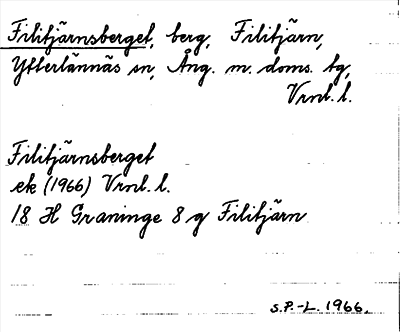 Filitjärnsberget, berg, Filitjärn,
Ytterlännäs sn, Ång. m. doms. tg,
Vrml. l.
Filitjärnsberget
ek (1966) Vrml. l.
18 H Graninge 8 g Filitjärn
S.P.-L. 1966.